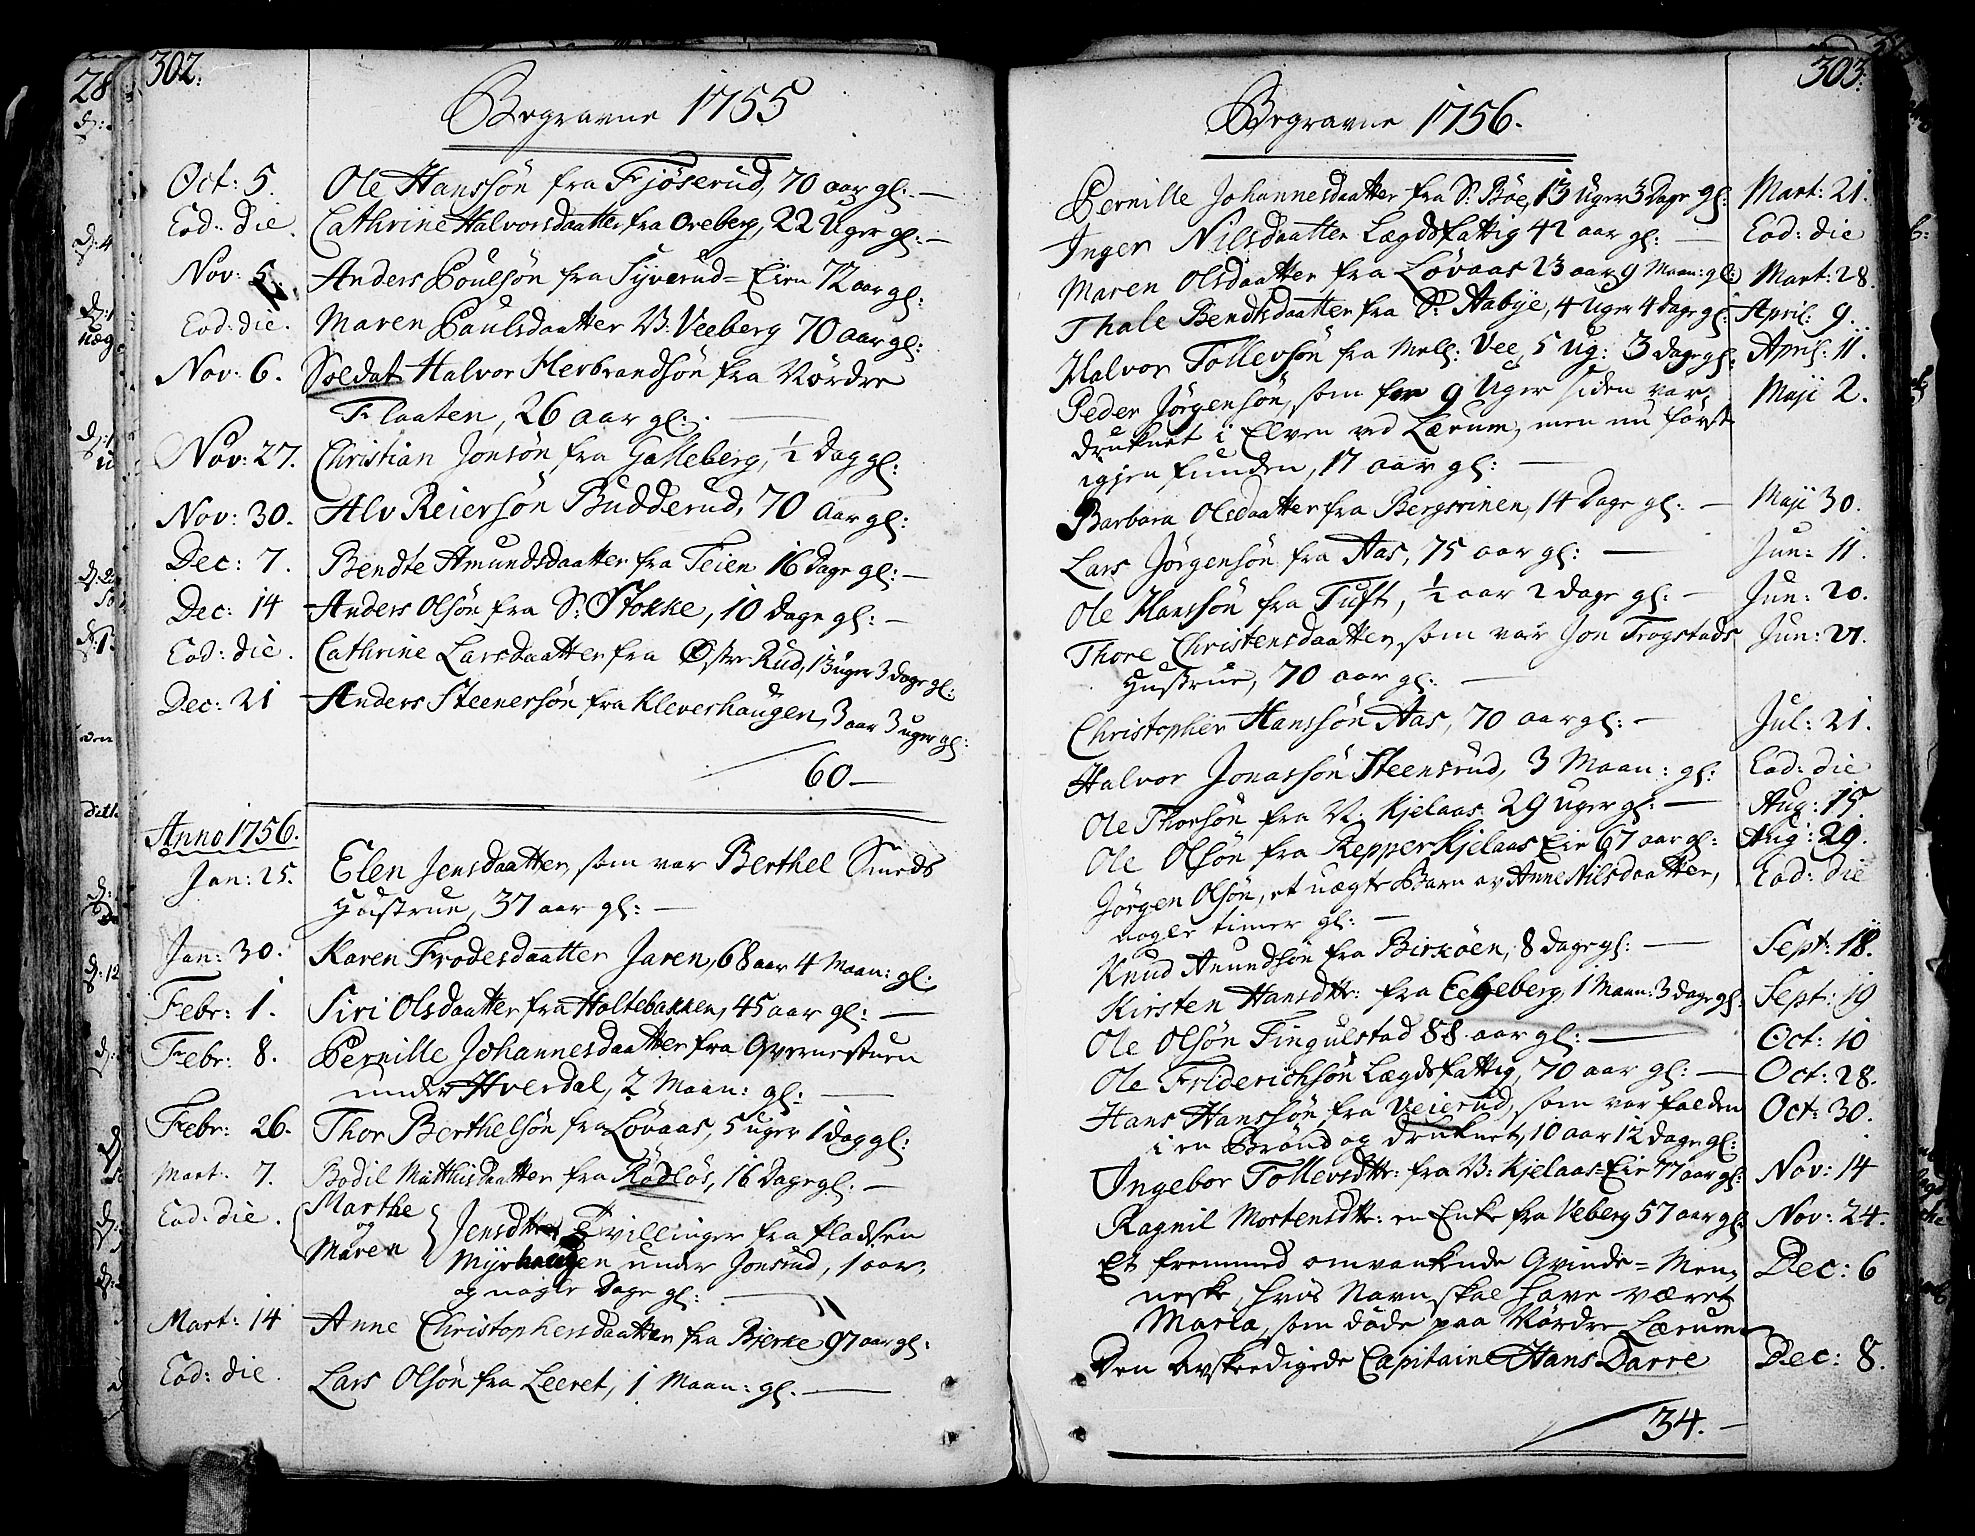 302.
Begravne 1755
Oct: 5. Ole Hanssön fra Fjöserud, 70 aar gl: —
Eod: die. Cathrine Halvorsdaatter fra Oreberg, 22 Uger gl: —
Nov: 5. Anders Poulsön fra Syverud = Eien 72 aar gl:
Eod: die. Maren Paulsdaatter V: Veeberg 70 aar gl:
Nov: 6. Soldat Halvor Herbrandsön fra Nördre
Flaaten, 26 aar gl: —
Nov: 27. Christian Jonsön fra Galleberg, ½ Dag gl:
Nov: 30. Alv Reiersön Budderud, 70 aar gl:
Dec: 7. Bendte Amundsdaatter fra Teien 16 Dage gl: —
Dec: 14 Anders Olsön fra S: Stokke, 10 Dage gl: —
Eod: die. Cathrine Larsdaatter fra Østre Rud, 13 uger 3 dage gl:
Dec: 21 Anders Steenersön fra Kleverhaugen, 3 aar 3 uger gl:
60 —
Anno 1756.
Jan: 25. Elen Jensdaatter, som var Berthel Smeds
Hustrue, 37 aar gl: —
Jan: 30. Karen Frodesdaatter Jaren, 68 aar 4 Maan: gl:
Febr: 1. Siri Olsdaatter fra Holtebakken, 45 aar gl: —
Febr: 8. Pernille Johannesdaatter fra Qvernestuen
under Hverdal, 2 Maan: gl: —
Febr: 26. Thor Berthelsön fra Lövaas, 5 uger 1 dag gl:
Mart: 7. Bodil Matthisdaatter fra Rödlös, 16 Dage gl: —
Eod: die. Marthe
og
Maren
Jensdttr, Tvillinger fra Pladsen
Myrhaugen under Jonsrud, 1 aar,
og nogle Dage gl: —
Mart: 14 Anne Christophersdaatter fra Bjerke 97 aar gl:
Eod: die. Lars Olsön fra Leeret, 1 Maan: gl: —
303.
Begravne 1756.
Pernille Johannesdaatter fra S: Böe, 13 Uger 3 Dage gl: Mart: 21.
Inger Nilsdaatter Lægdsfattig 42 aar gl: — Eod: die
Maren Olsdaatter fra Lövaas 23 aar 9 Maan: gl: Mart: 28.
Thale Bendtsdaatter fra S: Aabye, 4 Uger 4 dage gl: April: 9.
Halvor Tollevsön fra Mell: Vee, 5 Ug: 3 dage gl: April: 11.
Peder Jörgensön, som for 9 Uger siden var Maji 2.
druknet i Elven ved Lærum, men nu först
igjen funden, 17 aar gl: —
Barbara Olsdaatter fra Bergsvinen, 14 Dage gl: — Maji 30.
Lars Jörgensön fra Aas, 75 aar gl: — Jun: 11.
Ole Hanssön fra Tuft, ½ aar 2 dage gl: — Jun: 20.
Thore Christensdaatter, som var Jon Trogstads Jun: 21.
Hustrue, 70 aar gl: —
Christopher Hanssön Aas, 70 aar gl: — Jul: 21.
Halvor Jonassön Steensrud, 3 Maan: gl: Eod: die
Ole Thorsön fra V: Kjelaas 29 uger gl: — Aug: 15.
Ole Olsön fra Repper Kjelaas Eie 67 aar gl: Aug: 29.
Jörgen Olsön, et uægte Barn av Anne Nilsdaatter, Eod: die
nogle timer gl: —
Knud Anundsön fra Birköen, 8 dage gl: — Sept: 18.
Kirsten Hansdttr: fra Eegeberg, 1 Maan: 3 dage gl: Sept: 19
Ole Olsön Tingulstad 88 aar gl: — Oct: 10
Ole Friderichsön Lægdsfattig, 70 aar gl: — Oct: 28.
Hans Hanssön fra Veierud, som var falden Oct: 30.
i en Brönd og druknet, 10 aar 12 dage gl:
Ingebor Tollevsdttr: fra V: Kjelaas = Eie 77 aar gl: Nov: 14
Ragnil Mortensdttr: en Enke fra Veberg 57 aar gl: Nov: 24.
Et fremmed omvankende Qvinde = Men- Dec: 6
neske, hvis Navn skal have været
Maria, som döde paa Nördre Lærum
Den Avskeedigede Capitaine Hans Darre Dec: 8.
34. —